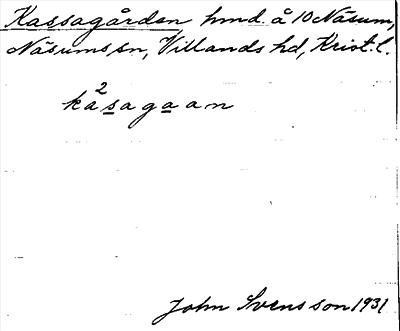 Kassagården hmd. å 10 Näsum,
Näsums sn, Villands hd, Krist. l.
ka²sagaan
John Svensson 1931